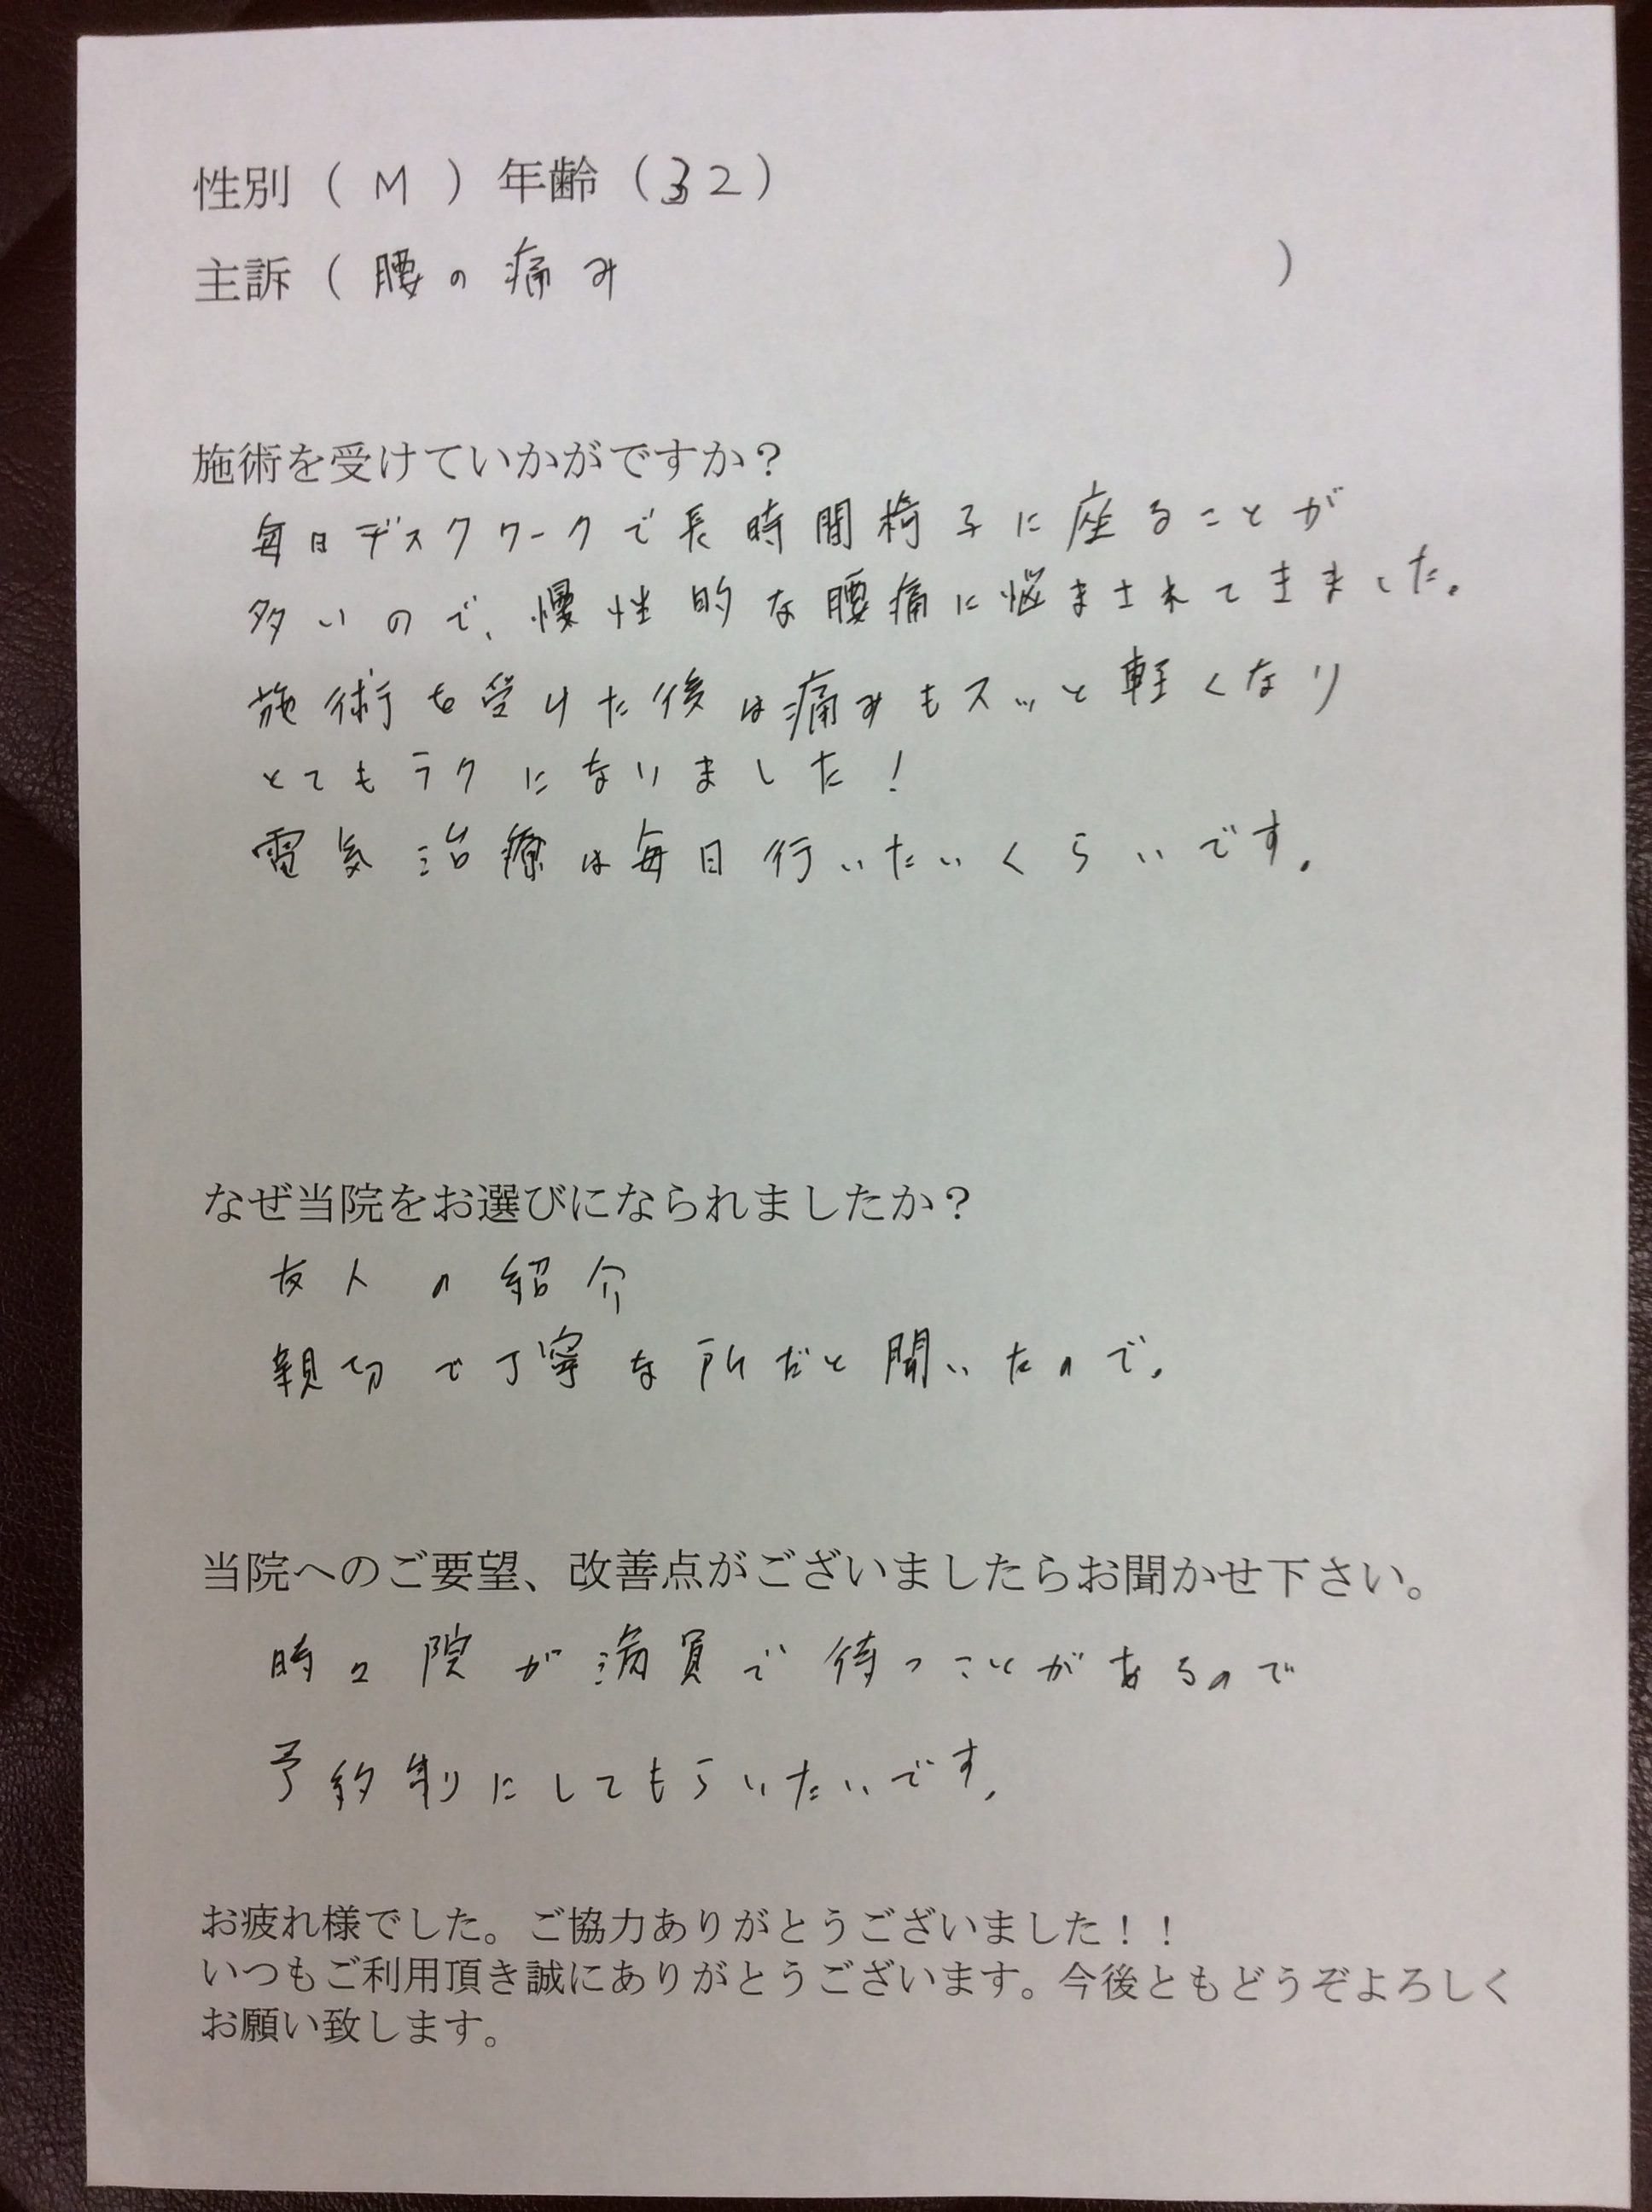 性別（M）年齢（32）
主訴（腰の痛み）
施術を受けていかがですか？
毎日デスクワークで長時間椅子に座ることが
多いので、慢性的な腰痛に悩まされてきました。
施術を受けた後は痛みもスッと軽くなり
とてもラクになりました！
電気治療は毎日行いたいくらいです。
なぜ当院をお選びになられましたか？
友人の紹介
親切で丁寧な所だと聞いたので。
当院へのご要望、改善点がございましたらお聞かせ下さい。
時々院が満員で待つことがあるので
予約制にしてもらいたいです。
お疲れ様でした。ご協力ありがとうございました！！
いつもご利用頂き誠にありがとうございます。今後ともどうぞよろしく
お願い致します。